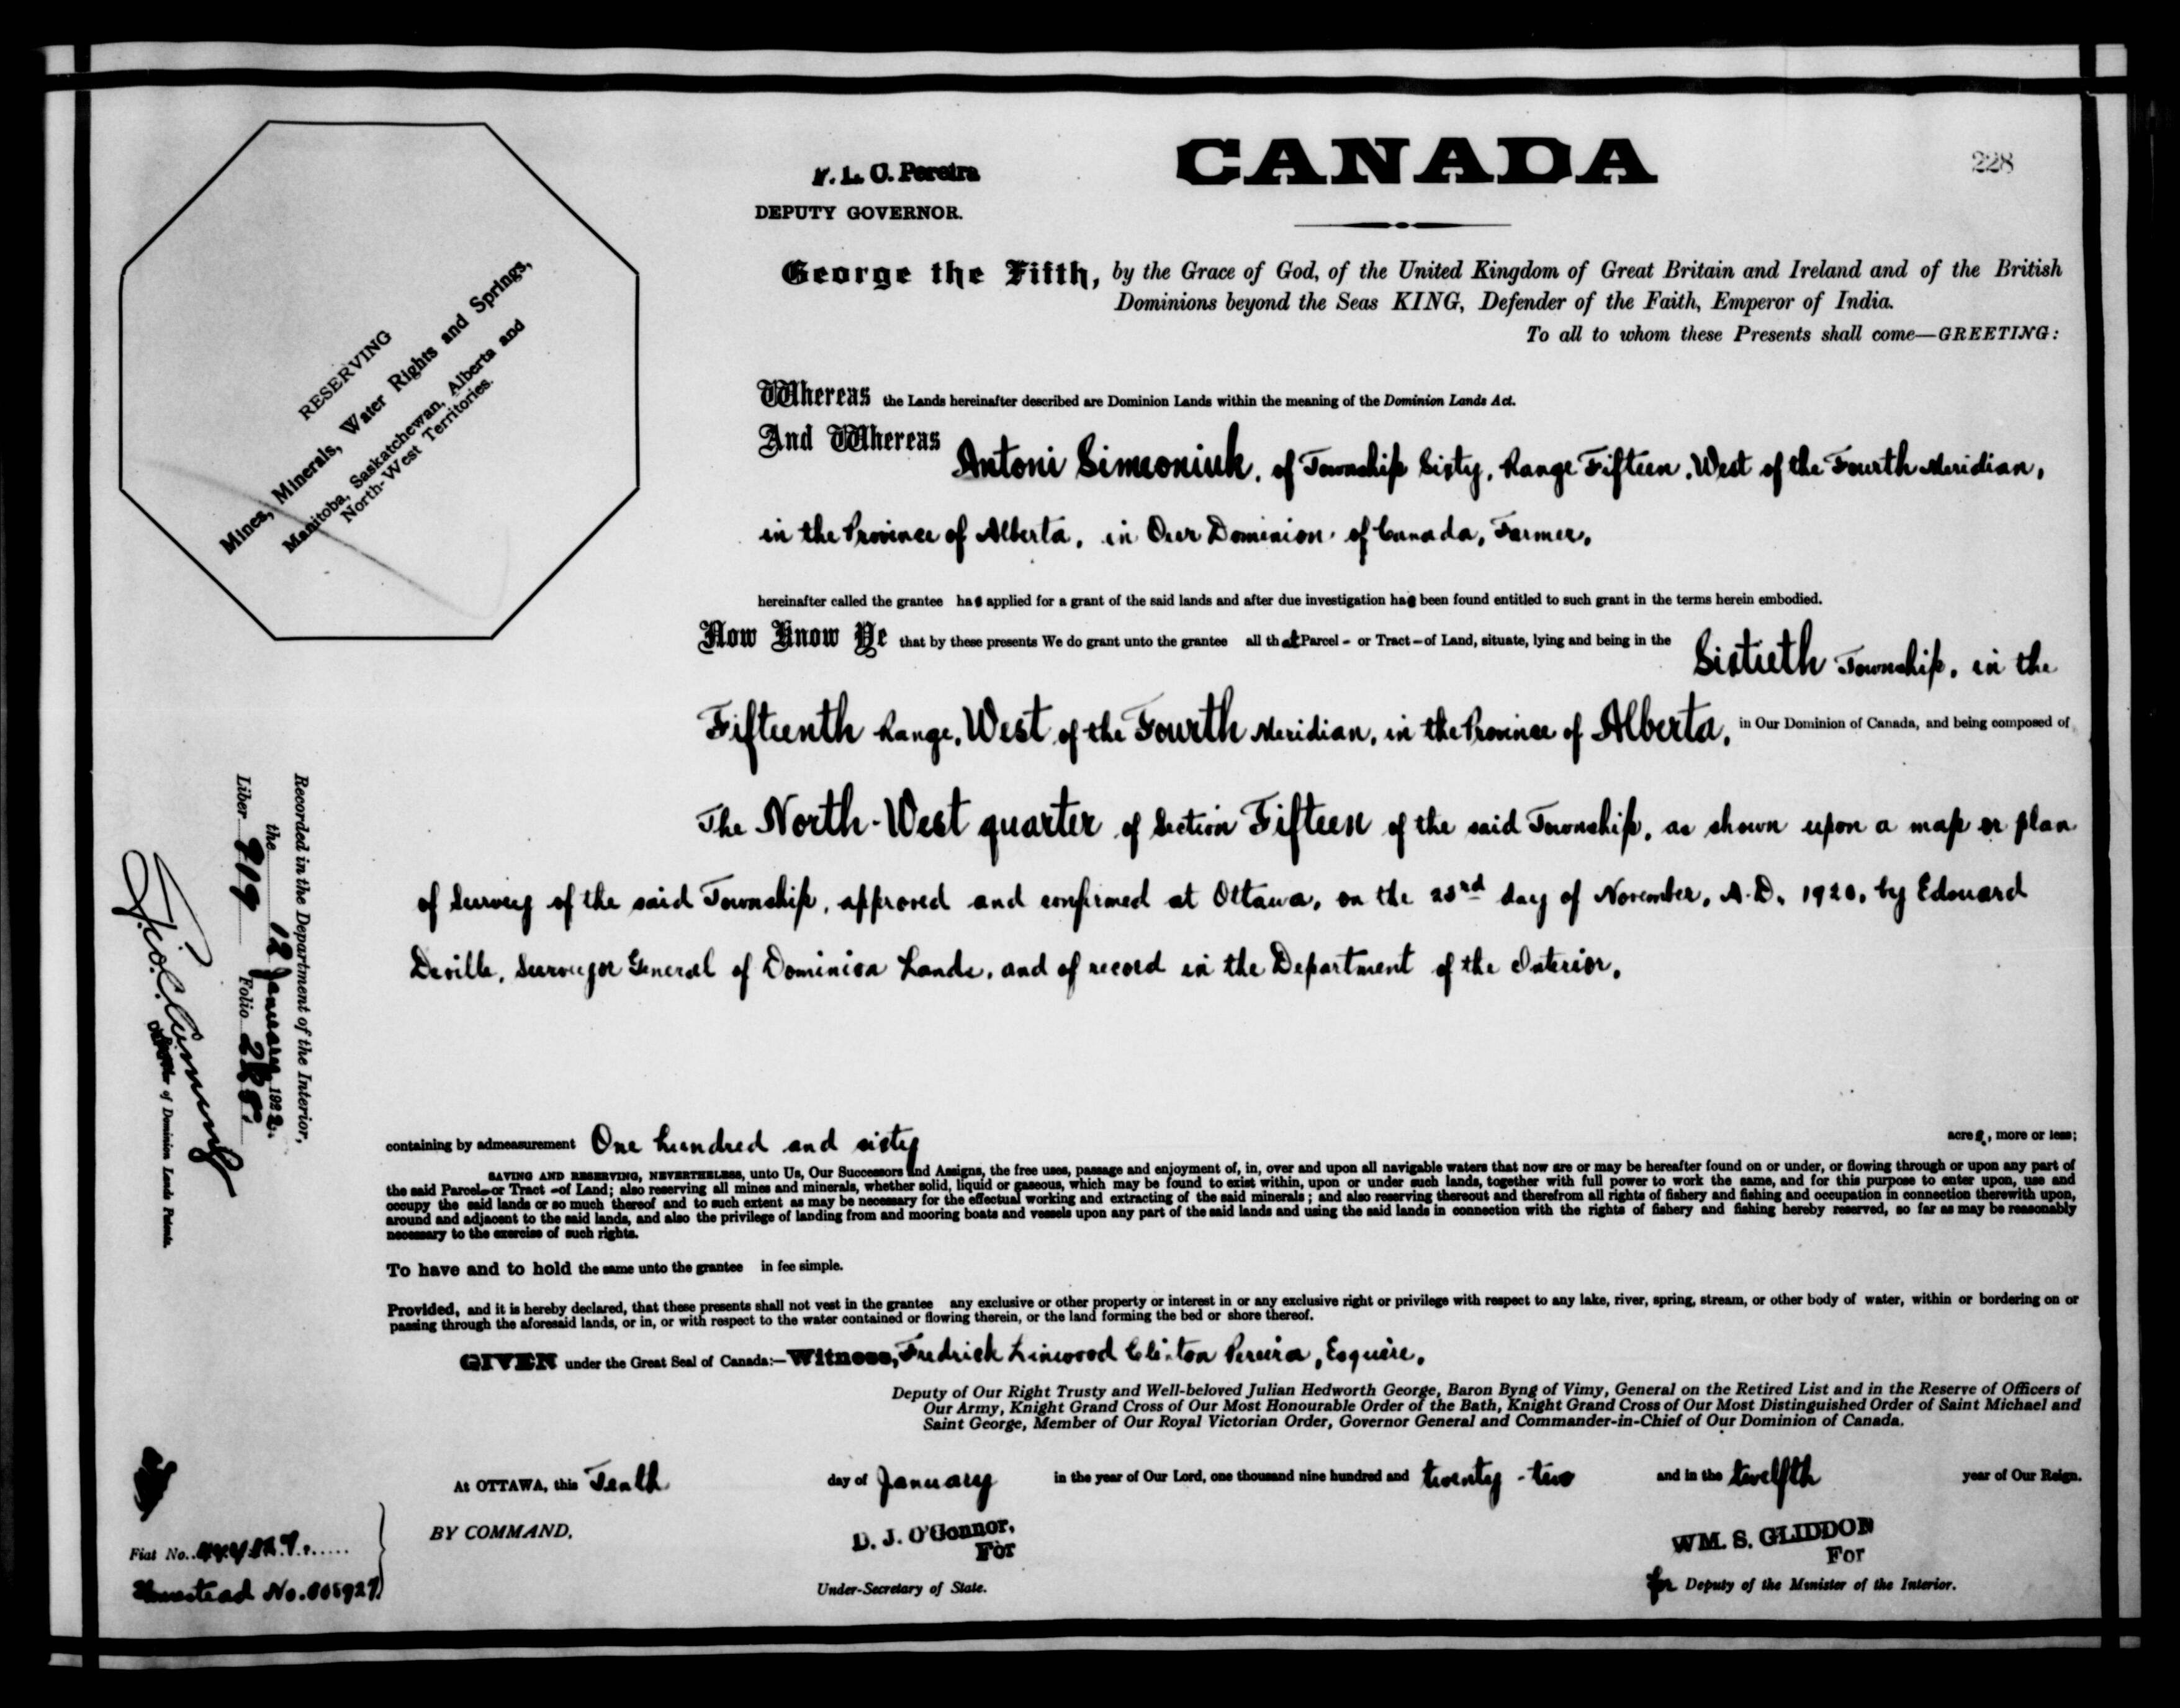 CANADA
228
F. L. C. Pereira
DEPUTY GOVERNOR.
RESERVING
Mines, Minerals, Water Rights and Springs,
Manitoba, Saskatchewan, Alberta and
North-West Territories.
George the Fifth, by the Grace of God, of the United Kingdom of Great Britain and Ireland and of the British
Dominions beyond the Seas KING, Defender of the Faith, Emperor of India.
To all to whom these Presents shall come—GREETING:
Whereas the Lands hereinafter described are Dominion Lands within the meaning of the Dominion Lands Act.
And Whereas Antoni Simeoniuk, of Township Sixty, Range Fifteen, West of the Fourth Meridian,
in the Province of Alberta, in Our Dominion of Canada, Farmer,
hereinafter called the grantee has applied for a grant of the said lands and after due investigation has been found entitled to such grant in the terms herein embodied.
Now Know Ye that by these presents We do grant unto the grantee all that Parcel - or Tract - of Land, situate, lying and being in the Sixtieth Township, in the
Fifteenth Range, West of the Fourth Meridian, in the Province of Alberta, in Our Dominion of Canada, and being composed of
The North-West quarter of Section Fifteen of the said Township, as shown upon a map or plan
of Survey of the said Township, approved and confirmed at Ottawa, on the 23rd day of November, A.D. 1920, by Edouard
Deville, Surveyor General of Dominion Lands, and of record in the Department of the Interior,
Recorded in the Department of the Interior,
the 12 January 1922.
Liber 919 Folio
of Dominion Lands Patents.
containing by admeasurement One hundred and sixty acres, more or less;
SAVING AND RESERVING, NEVERTHELESS, unto Us, Our Successors and Assigns, the free uses, passage and enjoyment of, in, over and upon all navigable waters that now are or may be hereafter found on or under, or flowing through or upon any part of
the said Parcel-or Tract -of Land; also reserving all mines and minerals, whether solid, liquid or gaseous, which may be found to exist within, upon or under such lands, together with full power to work the same, and for this purpose to enter upon, use and
occupy the said lands or so much thereof and to such extent as may be necessary for the effectual working and extracting of the said minerals; and also reserving thereout and therefrom all rights of fishery and fishing and occupation in connection therewith upon,
around and adjacent to the said lands, and also the privilege of landing from and mooring boats and vessels upon any part of the said lands and using the said lands in connection with the rights of fishery and fishing hereby reserved, so far as may be reasonably
necessary to the exercise of such rights.
To have and to hold the same unto the grantee in fee simple.
Provided, and it is hereby declared, that these presents shall not vest in the grantee any exclusive or other property or interest in or any exclusive right or privilege with respect to any lake, river, spring, stream, or other body of water, within or bordering on or
passing through the aforesaid lands, or in, or with respect to the water contained or flowing therein, or the land forming the bed or shore thereof.
GIVEN under the Great Seal of Canada:—Witness, Fredrick Linwood Clinton Pereira, Esquire,
Deputy of Our Right Trusty and Well-beloved Julian Hedworth George, Baron Byng of Vimy, General on the Retired List and in the Reserve of Officers of
Our Army, Knight Grand Cross of Our Most Honourable Order of the Bath, Knight Grand Cross of Our Most Distinguished Order of Saint Michael and
Saint George, Member of Our Royal Victorian Order, Governor General and Commander-in-Chief of Our Dominion of Canada.
At OTTAWA, this Tenth day of January in the year of Our Lord, one thousand nine hundred and twenty-two and in the twelfth year of Our Reign.
BY COMMAND,
D. J. O'Connor,
For
Under-Secretary of State.
WM. S. GLIDDON
For
for Deputy of the Minister of the Interior.
Fiat No.
Homestead No.